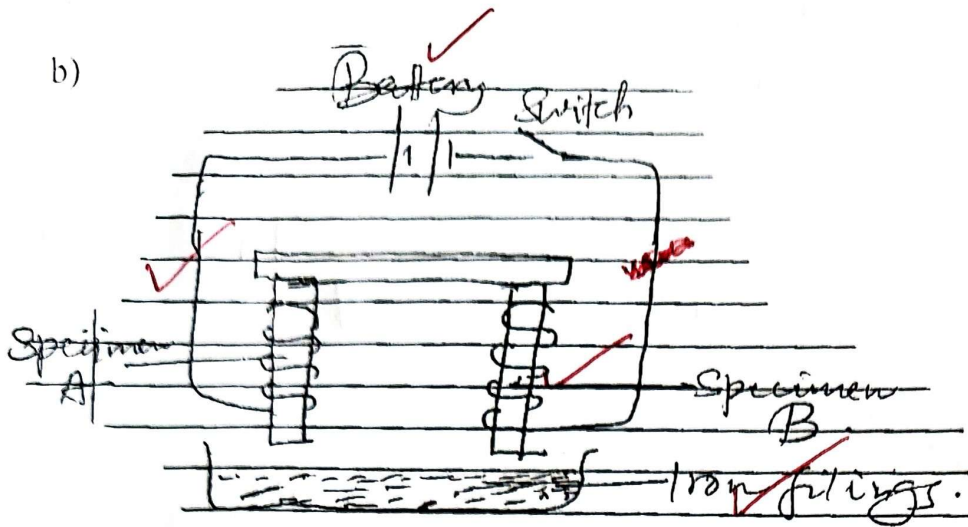 b)
Battery
Switch
Specimen
A
Specimen
B
Iron filings.